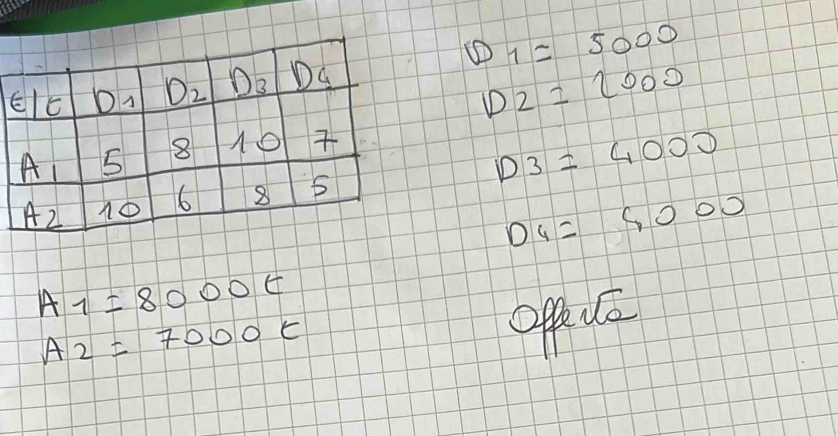 €/t D1 D2 D3 D4
A1 5 8 10 7
A2 10 6 8 5
A1 = 8000 t
A2 = 7000 t
D1 = 5000
D2 = 2000
D3 = 4000
D4 = 4000
Offerta